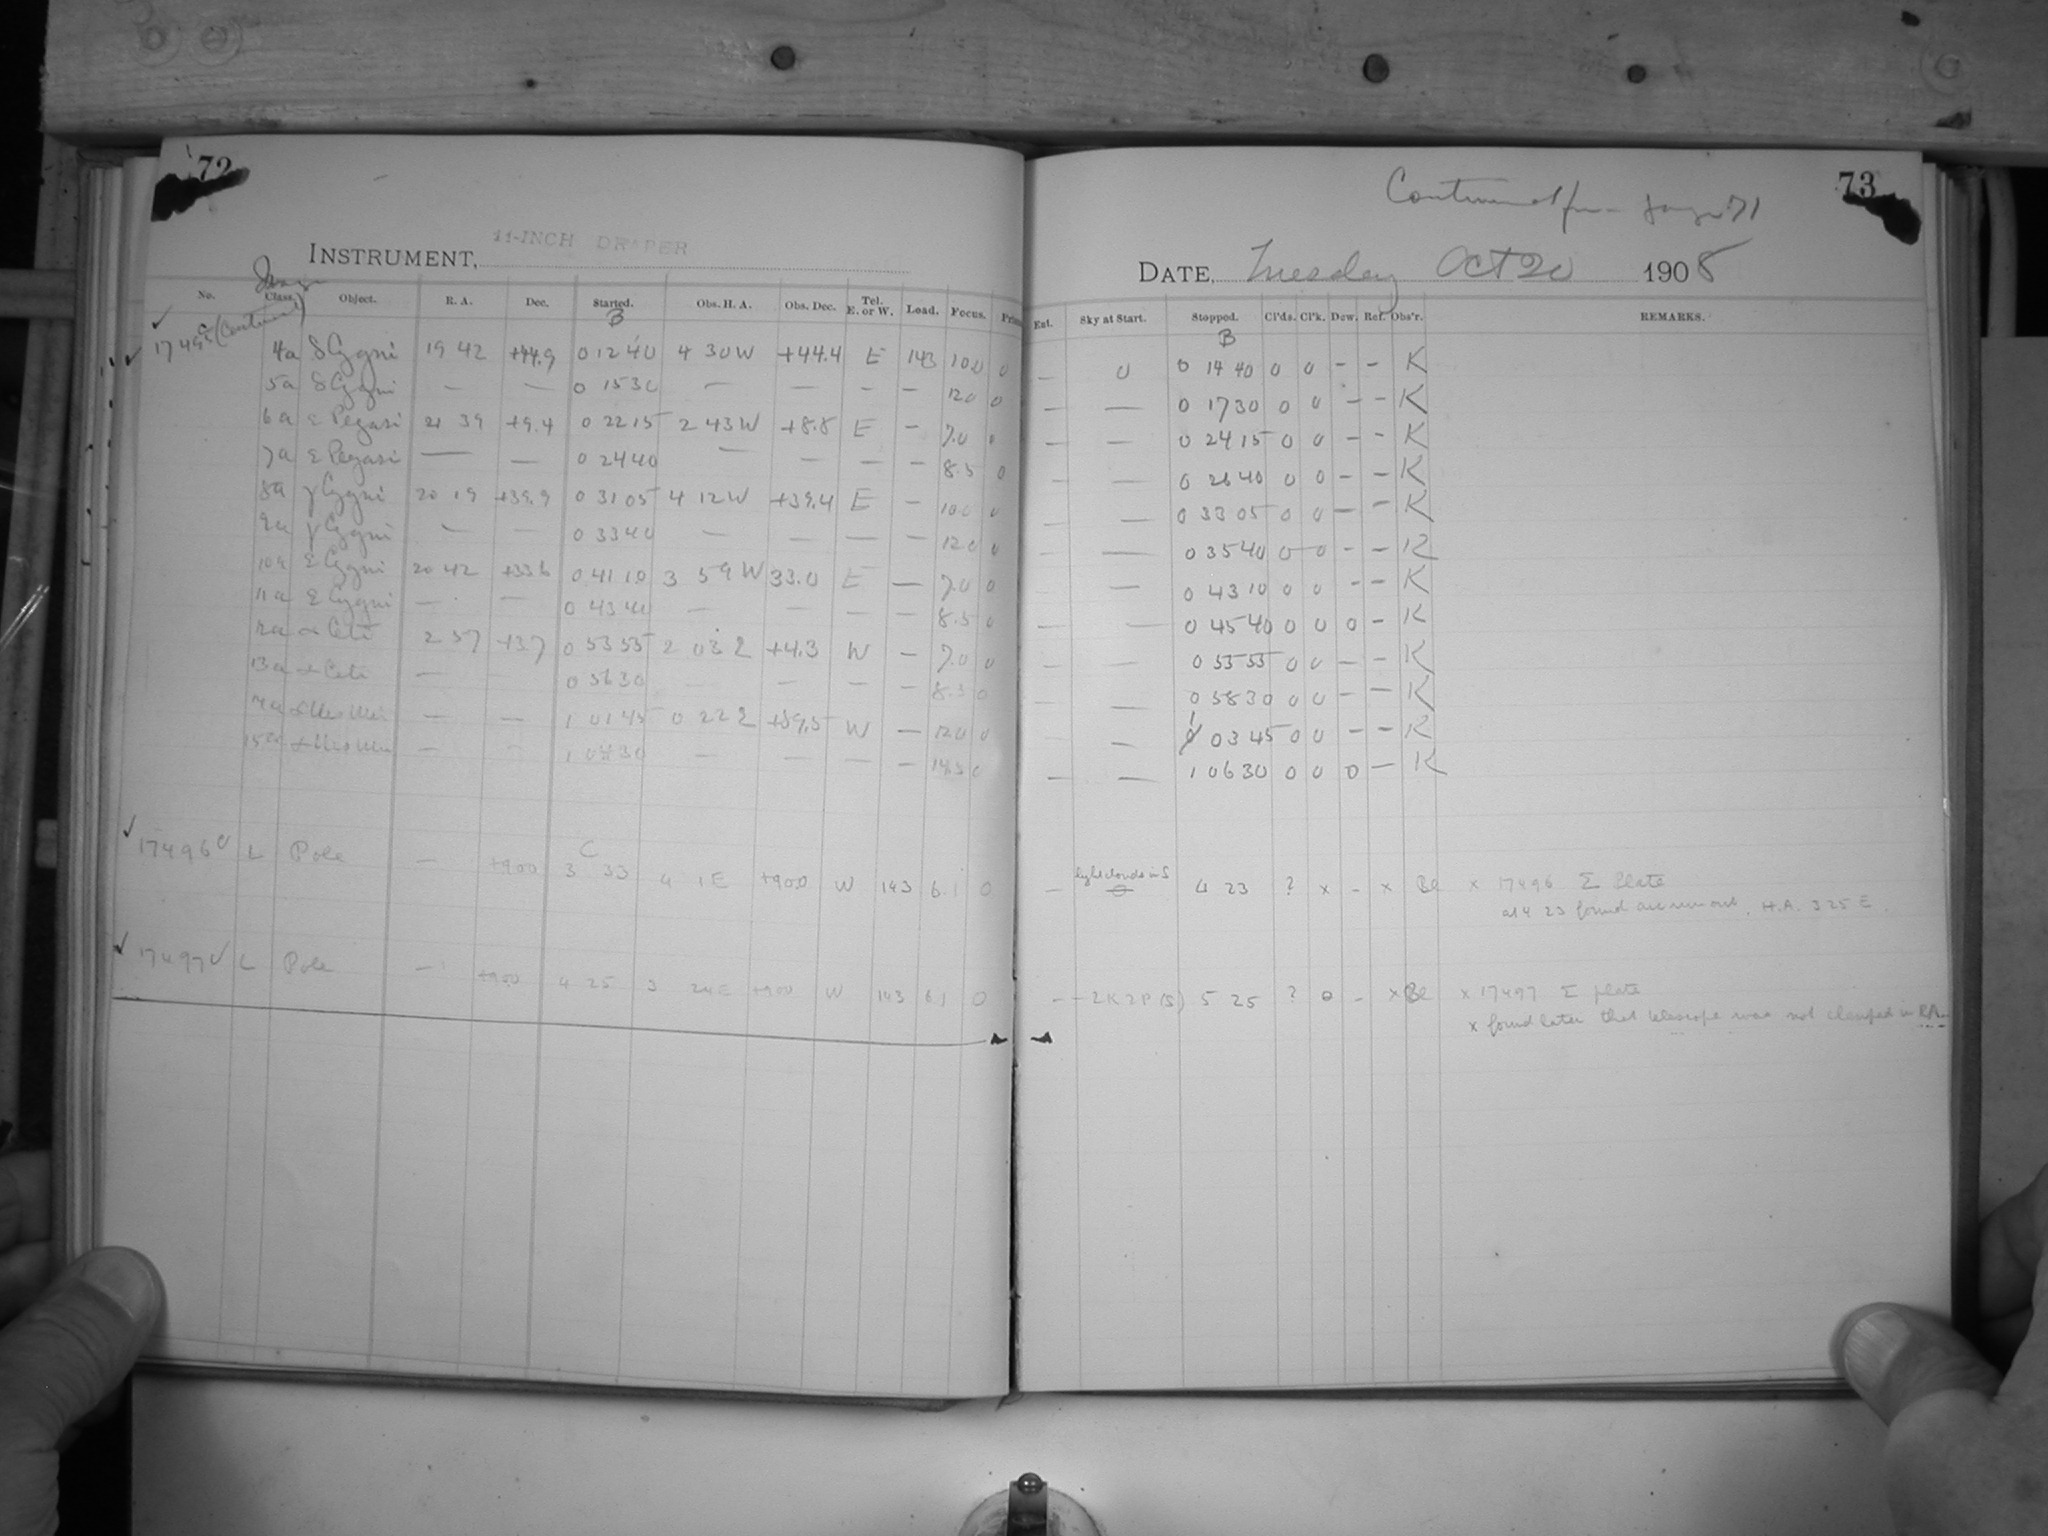 72
11-INCH DRAPER
INSTRUMENT,
Image
No. Class. Object. R. A. Dec. Started. Obs. H. A. Obs. Dec. Tel. E. or W. Load. Focus.
B
17495 (Continued)
4a δ Cygni 19 42 +44.9 0 12 40 4 30 W +44.4 E 143 10.0 0
5a δ Cygni — — 0 15 30 — — — — 12.0 0
6a ε Pegasi 21 39 +9.4 0 22 15 2 43 W +8.8 E — 7.0 0
7a ε Pegasi — — 0 24 40 — — — — 8.5 0
8a γ Cygni 20 19 +39.9 0 31 05 4 12 W +39.4 E — 10.0 0
9a γ Cygni — — 0 33 40 — — — — 12.0 0
10a ε Cygni 20 42 +33.6 0 41 10 3 59 W 33.0 E — 7.0 0
11a ε Cygni — — 0 43 40 — — — — 8.5 0
12a α Ceti 2 57 +3.7 0 53 55 2 03 E +4.3 W — 7.0 0
13a α Ceti — — 0 56 30 — — — — 8.5 0
14a α Urs Min — — 1 01 45 0 22 E +89.5 W — 12.0 0
15a α Urs Min — — 1 04 30 — — — — 14.5 0
C
17496 L Pole — +90.0 3 33 4 1 E +90.0 W 143 6.1 0
17497 L Pole — +90.0 4 25 3 24 E +90.0 W 143 6.1 0
73
Continued from page 71
DATE, Tuesday Oct 20 1908
Ext. Sky at Start. Stopped. Cl'ds. Cl'k. Dew. Ref. Obs'r. REMARKS.
B
— 0 0 14 40 0 0 – – K
— — 0 17 30 0 0 – – K
— — 0 24 15 0 0 – – K
— — 0 26 40 0 0 – – K
— — 0 33 05 0 0 – – K
— — 0 35 40 0 0 – – K
— — 0 43 10 0 0 – – K
— — 0 45 40 0 0 0 – K
— — 0 55 55 0 0 – – K
— — 0 58 30 0 0 – – K
— — 1 03 45 0 0 – – K
— — 1 06 30 0 0 0 – K
light clouds in S
— 4 23 ? x – x Bl x 17496 Σ Plate
at 4 23 found arc run out, H.A. 3 25 E.
— 2K2P(S) 5 25 ? 0 – x Bl x 17497 Σ plate
x found later that telescope was not clamped in R.A.